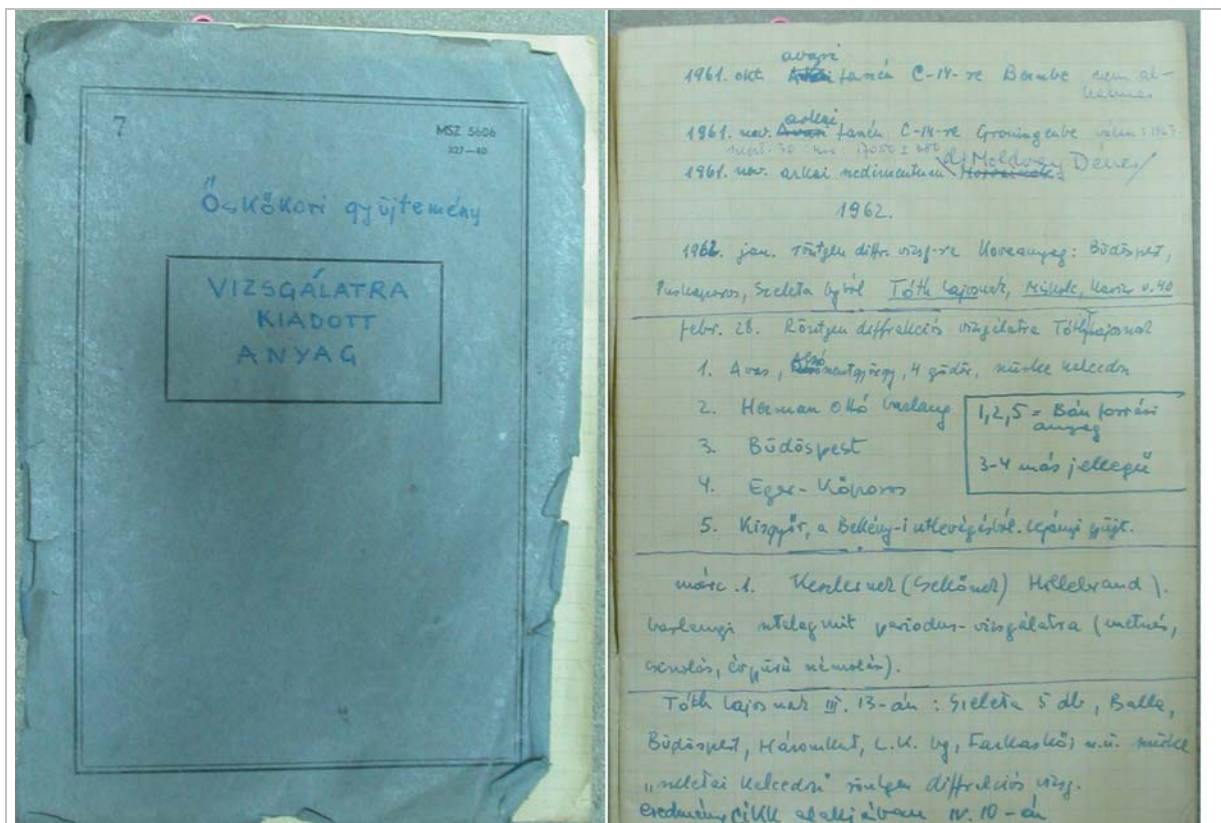 7
MSZ 5606
327—40
Őskőkori gyűjtemény
VIZSGÁLATRA
KIADOTT
ANYAG
avasi
1961. okt. faszén C-14-re Bernbe nem al-
kalmas
arkai
1961. nov. Avasi faszén C-14-re Groningenbe válasz 1963.
szept. 30 17050 ± 350
1961. nov. arkai sedimentum dr Moldvay Dénes/
1962.
1962. jan. röntgen diffr. vizsg-re kovaanyag: Büdöspest,
Puskaporos, Szeleta bgből Tóth Lajosnak, Miskolc, u. 40
febr. 28. Röntgen diffrakciós vizsgálatra Tóth Lajosnak
1. Avas, Alsószentgyörgy, 4 gödör, szürke kalcedon
2. Herman Ottó barlang
3. Büdöspest
4. Eger-Kőporos
5. Kisgyőr, a Bekény-i útbevágásból. gyűjt.
1,2,5 = Bán forrási
anyag
3-4 más jellegű
márc. 1. Kesslernek (Gellőnek) Hillebrand J.
barlangi sztalagmit periodus-vizsgálatra (metszés,
csiszolás, évgyűrű számolás).
Tóth Lajosnak III. 13-án: Szeleta 5 db, Balla,
Büdöspest, Háromkút, L.K. bg, Farkaskő, n.n. szürke
„szeletai kalcedon" röntgen diffrakciós vizsg.
eredmény CIKK alakjában IV. 10-én